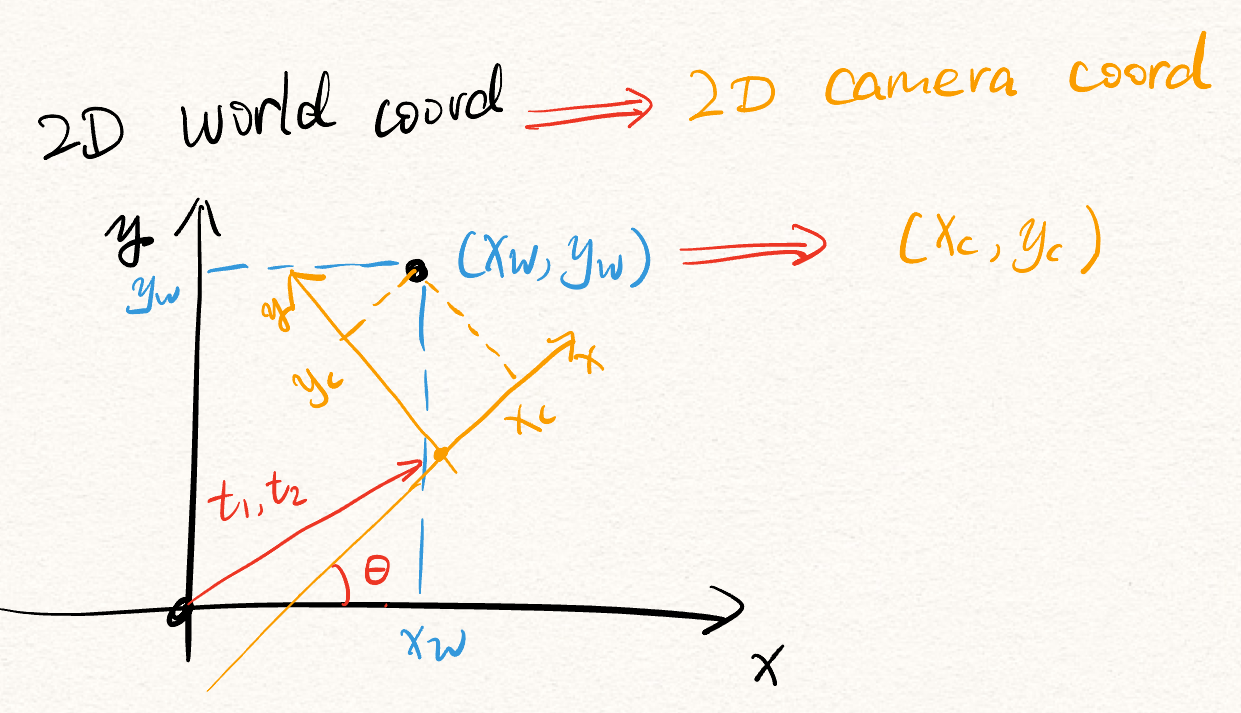 2D world coord ⇒ 2D camera coord
y
(xw, yw) ⇒ (xc, yc)
yw
y
x
yc
xc
t1, t2
θ
xw
x